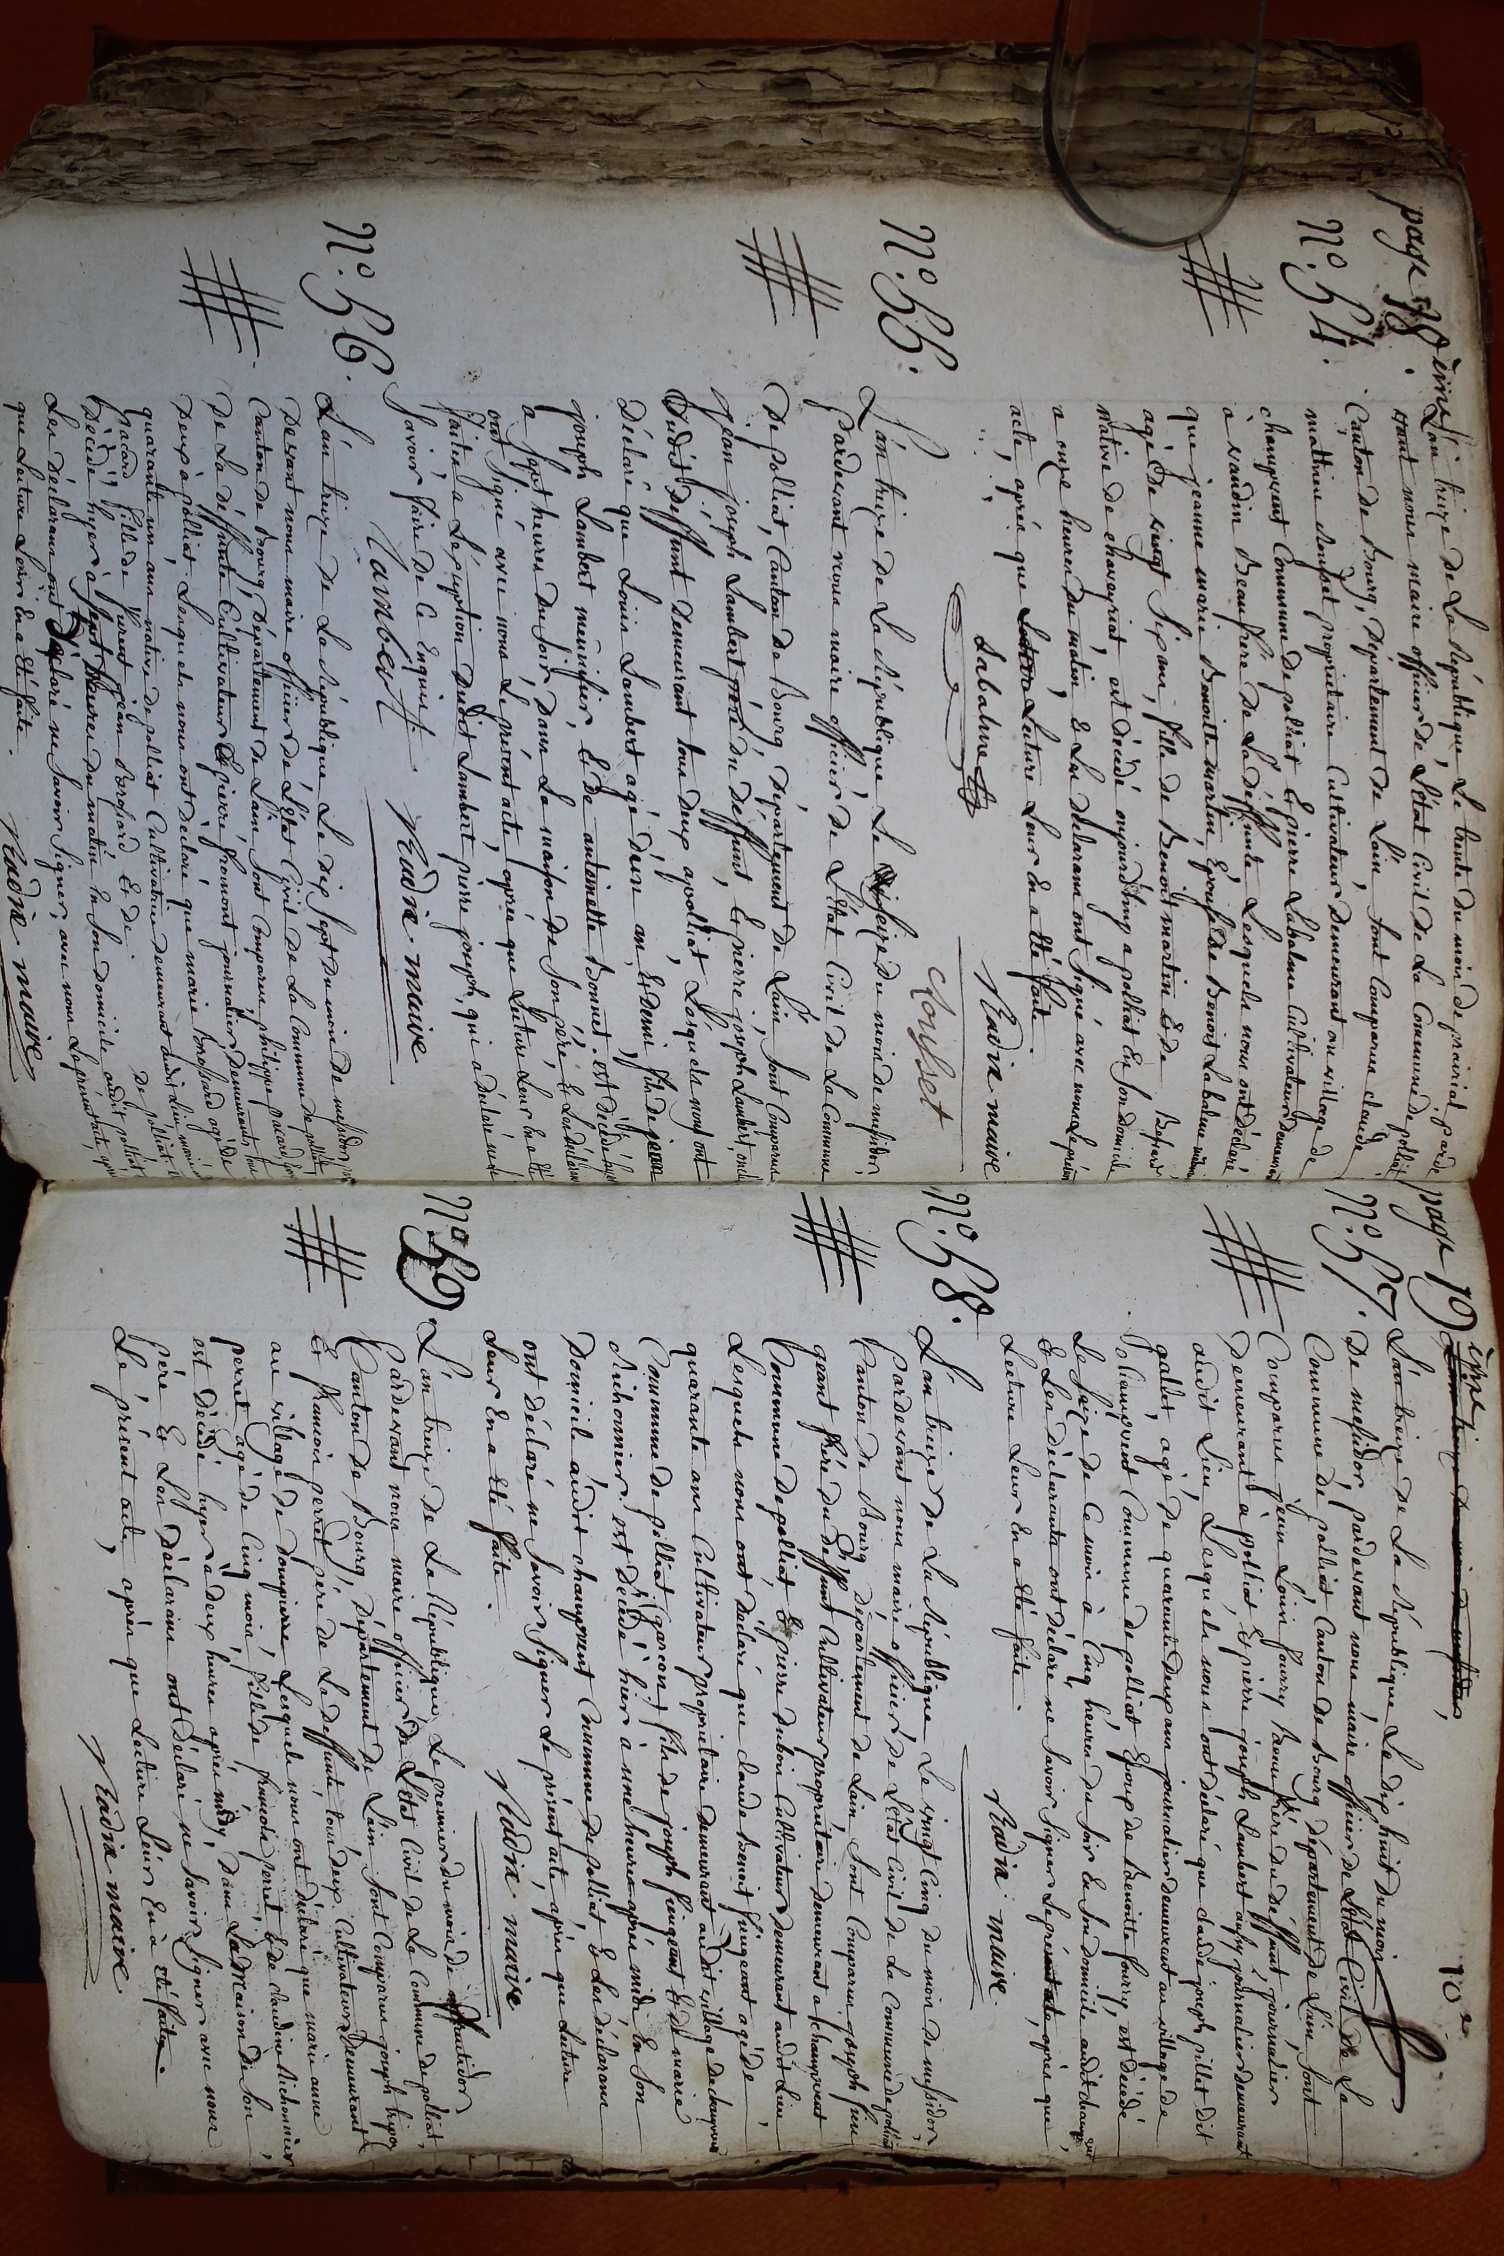 page 18 ème
N°. 54.
L'an treize de La République, Le trente du mois de prairial, parde
vant nous maire officier de L'état Civil de La Commune de polliat
Canton de Bourg, Département de L'ain, sont Comparus claude
mathieu chousset proprietaire Cultivateur Demeurant au village de
champvent Commune de polliat & pierre Labalme Cultivateur demeurant
à vandin Beaufrère de La deffunte Lesquels nous ont déclaré
que jeanne marie Benoitte martin Epouse de Benoit Labalme
agé de vingt six ans, fille de Benoit martin & de Bossard
native de chaveyriat est décédé aujourd'huy a polliat En son domicile
a onze heures du matin, & Les déclarans ont signé avec nous Le présent
acte, après que Lecture Leur En a été faite.
Labalme
Chousset
Nadin maire
N°. 55.
L'an treize de La République Le seize du mois de messidor,
Pardevant nous maire officier, de L'état Civil de La Commune
De polliat, Canton de Bourg Département de Lain, sont Comparus
Jean joseph Lambert père du deffunt, & pierre joseph Lambert oncle
Dudit deffunt Demeurant tous deux a polliat, Lesquels nous ont
Déclaré que Louis Lambert agé d'un an, & demi fils de jean
joseph Lambert menuisier, & de antoinette Bonnet. est décédé hyer
a sept heures du soir dans La maison de son père, & Les déclarans
ont signé avec nous Le présent acte, après que Lecture Leur En a été
faite a L'exception Dudit Lambert pierre joseph, qui a déclaré ne le
savoir faire de Ce Enquis.
Lambert
Nadin maire
N°. 56.
L'an treize de La République Le dix sept du mois de messidor, par
Devant nous maire officier de L'état Civil de La Commune de polliat
Canton de Bourg, Département de L'ain sont Comparus, philippe pacard
De La deffunte Cultivateur & pierre fromont journalier Demeurants tous
Deux à polliat, Lesquels nous ont déclaré que marie Brossard agé de
quarante un ans native de polliat Cultivatrice demeurant audit Lieu,
pacard, fille de furent jean Brossard & de de polliat
Décédé hyer à sept heures du matin En son domicile audit polliat
Les déclarans ont déclaré ne savoir signer, avec nous Le présent acte, après
que Lecture Leur En a été faite.
Nadin maire
page 19 ème
10e
N°. 57.
L'an treize de La République Le dix huit du mois
De messidor, pardevant nous maire officier de L'état Civil de La
Commune de polliat Canton de Bourg Département de L'ain, sont
Comparus jean Louis fourry Beau frère du deffunt, journalier
Demeurant a polliat, & pierre joseph Lambert aussy journalier demeurant
audit Lieu, Lesquels nous ont déclaré que claude joseph pillet dit
gallet, agé de quarante deux ans journalier demeurant au village de
Poliampvent Commune de polliat Epoux de Benoitte fourry, est décédé
Le seize de Ce mois à Cinq heures du soir En son domicile audit champvent
& Les déclarants ont déclaré ne savoir signer Le présent acte, après que,
Lecture Leur En a été faite.
Nadin maire.
N°. 58.
L'an treize de La République Le vingt Cinq du mois de messidor,
Pardevant nous maire officier, de L'état Civil de La Commune de polliat
Canton de Bourg Département de Lain, sont Comparus joseph feu
geant frère du deffunt Cultivateur proprietaire demeurant a champvent
Commune de polliat & pierre dubois Cultivateur demeurant audit Lieu
Lesquels nous ont déclaré que claude Benoit feugeant agé de
quarante ans Cultivateur proprietaire demeurant audit village de champvent
Commune de polliat garçon & fils de joseph feugeant & de marie
Michonnier. est décédé hier à une heure après midi En son
Domicile audit champvent Commune de polliat & Les déclarans
ont déclaré ne savoir signer Le présent acte, après que Lecture
Leur En a été faite.
Nadin maire
N°. 59.
L'an treize de La République, Le premier du mois de thermidor
Pardevant nous maire officier de L'état Civil de La Commune de polliat,
Canton de Bourg, Département de Lain sont Comparus joseph
& françois perret père de La deffunte tous deux Cultivateurs demeurants
au village de dompierre Lesquels nous ont déclaré que marie anne
perret agé de Cinq mois, fille de françois perret, & de claudine Michonnier
est décédé hyer à deux heures après midy, dans La maison de son
Père & Les déclarans ont déclaré ne savoir signer avec nous
Le présent acte, après que Lecture Leur En a été faite.
Nadin maire